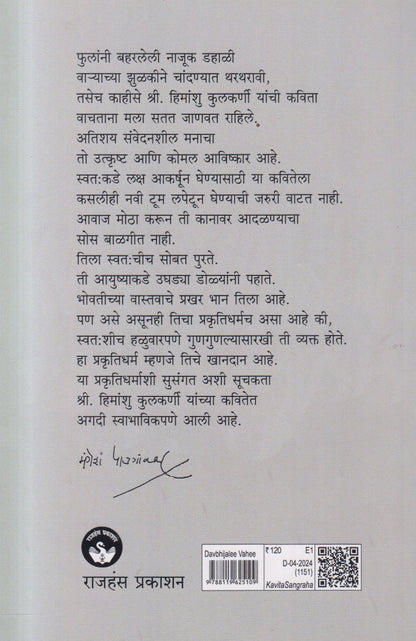 फुलांनी बहरलेली नाजूक डहाळी
वाऱ्याच्या झुळकीने चांदण्यात थरथरावी,
तसेच काहीसे श्री. हिमांशु कुलकर्णी यांची कविता
वाचताना मला सतत जाणवत राहिले.
अतिशय संवेदनशील मनाचा
तो उत्कृष्ट आणि कोमल आविष्कार आहे.
स्वत:कडे लक्ष आकर्षून घेण्यासाठी या कवितेला
कसलीही नवी टूम लपेटून घेण्याची जरुरी वाटत नाही.
आवाज मोठा करून ती कानावर आदळण्याचा
सोस बाळगीत नाही.
तिला स्वत:चीच सोबत पुरते.
ती आयुष्याकडे उघड्या डोळ्यांनी पहाते.
भोवतीच्या वास्तवाचे प्रखर भान तिला आहे.
पण असे असूनही तिचा प्रकृतिधर्मच असा आहे की,
स्वत:शीच हळुवारपणे गुणगुणल्यासारखी ती व्यक्त होते.
हा प्रकृतिधर्म म्हणजे तिचे खानदान आहे.
या प्रकृतिधर्माशी सुसंगत अशी सूचकता
श्री. हिमांशु कुलकर्णी यांच्या कवितेत
अगदी स्वाभाविकपणे आली आहे.
मंगेश पाडगांवकर
राजहंस प्रकाशन
राजहंस प्रकाशन
Davbhijalee Vahee
9 788119 625109
₹120 E1
D-04-2024
(1151)
KavitaSangraha